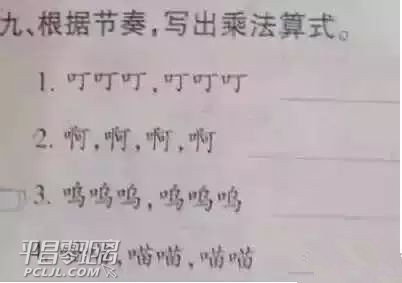 九、根据节奏,写出乘法算式。
1. 叮叮叮,叮叮叮
2. 啊,啊,啊,啊
3. 呜呜呜,呜呜呜
4. 喵喵,喵喵,喵喵
平昌零距离
PCLJL.COM